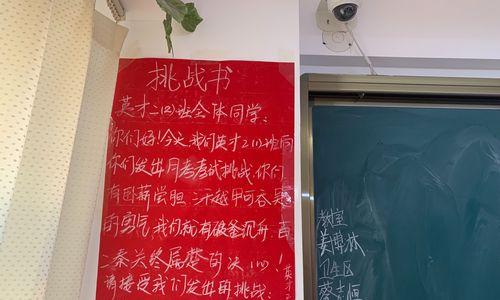 挑战书
英才二(2)班全体同学:
你们好!今天,我们英才2(1)班向
你们发出月考考试挑战,你们
有卧薪尝胆,三千越甲可吞吴
的勇气,我们就有破釜沉舟,百
二秦关终属楚的决心!
请接受我们发出的挑战:
教室
姜
林
卫区